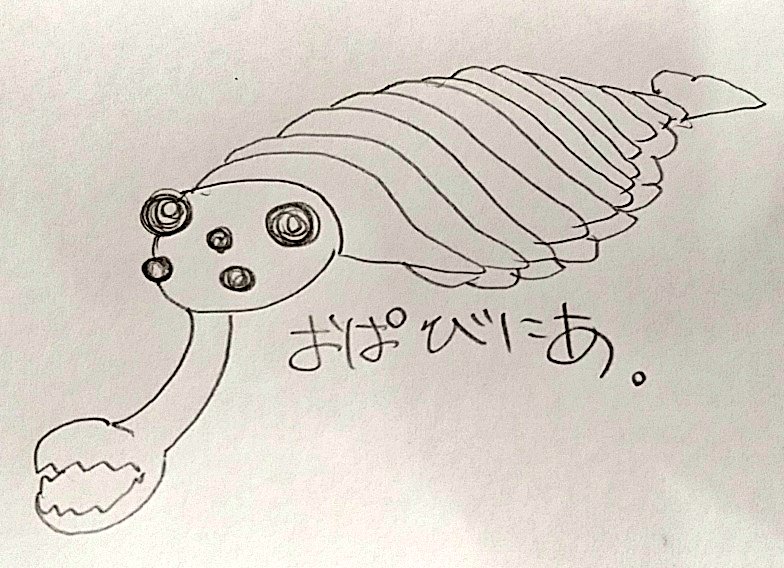 おぱびにあ。